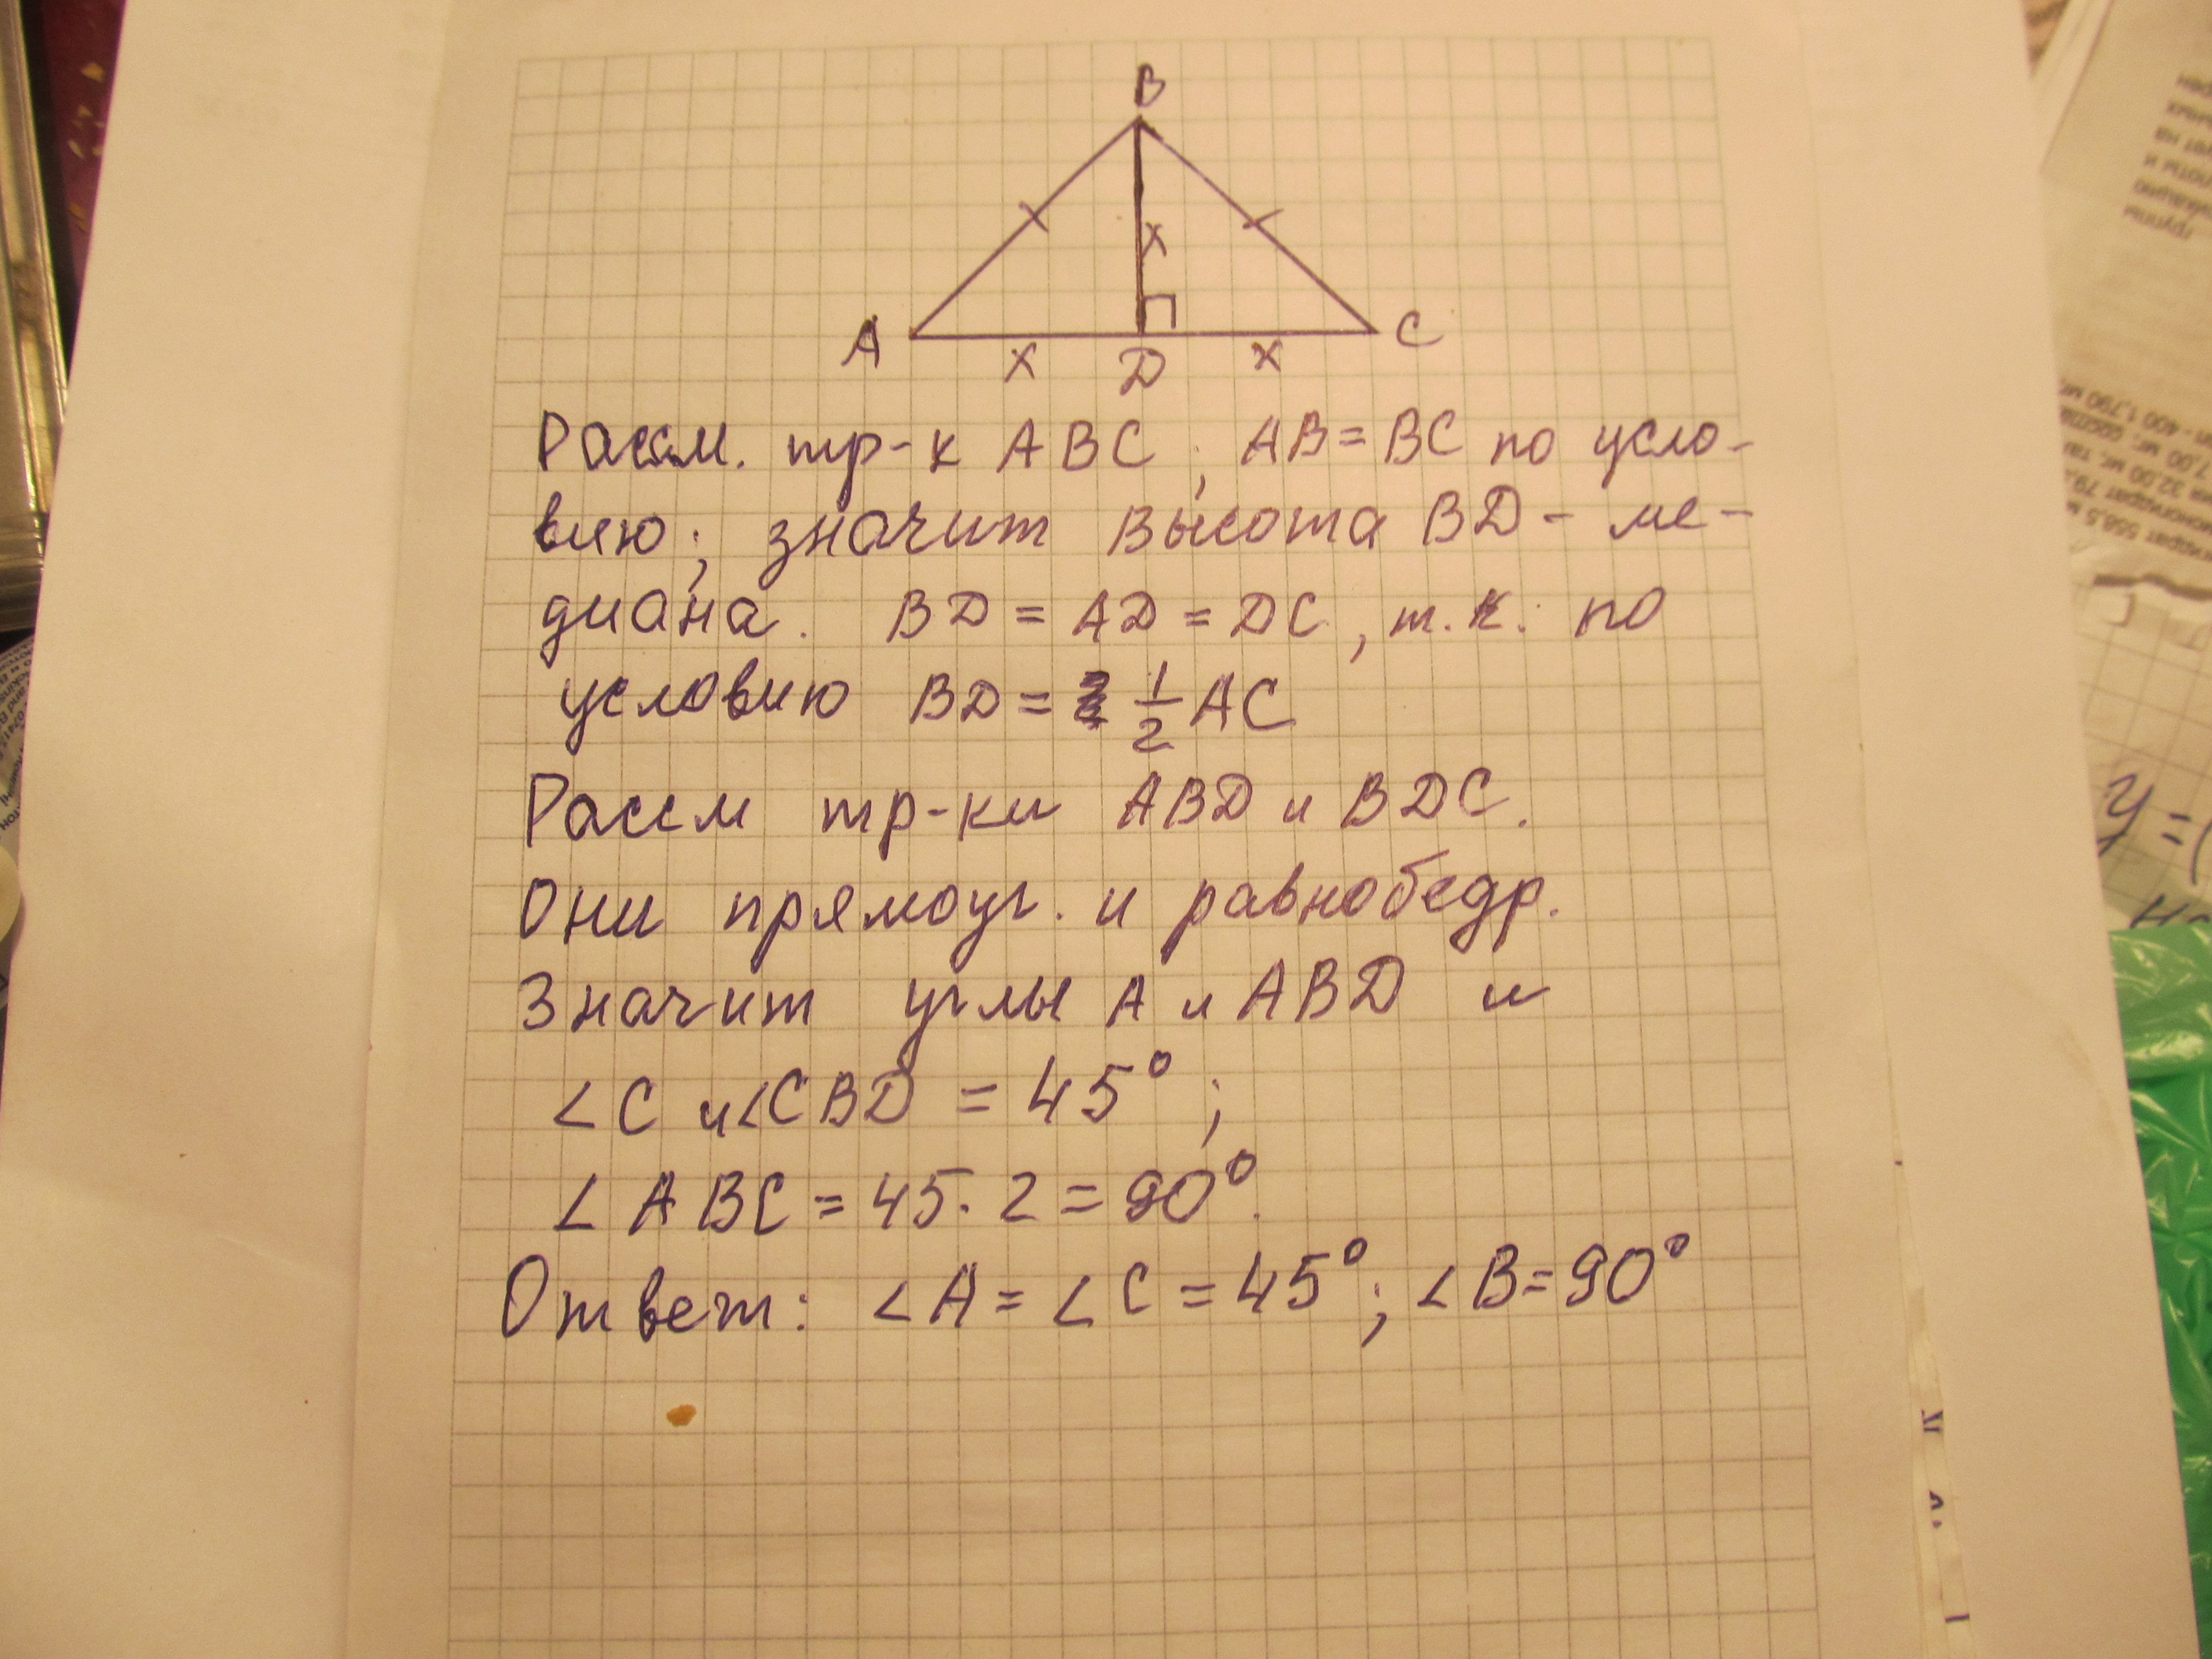 B
x
A
C
x
D
x
Рассм. тр-к ABC, AB=BC по усло-
вию; значит высота BD - ме-
диана. BD = AD = DC, т.к. по
условию BD = 1/2 AC
Рассм тр-ки ABD и BDC.
Они прямоуг. и равнобедр.
Значит углы A и ABD и
∠C и ∠CBD = 45°;
∠ABC = 45·2 = 90°.
Ответ: ∠A = ∠C = 45°; ∠B = 90°
y = (